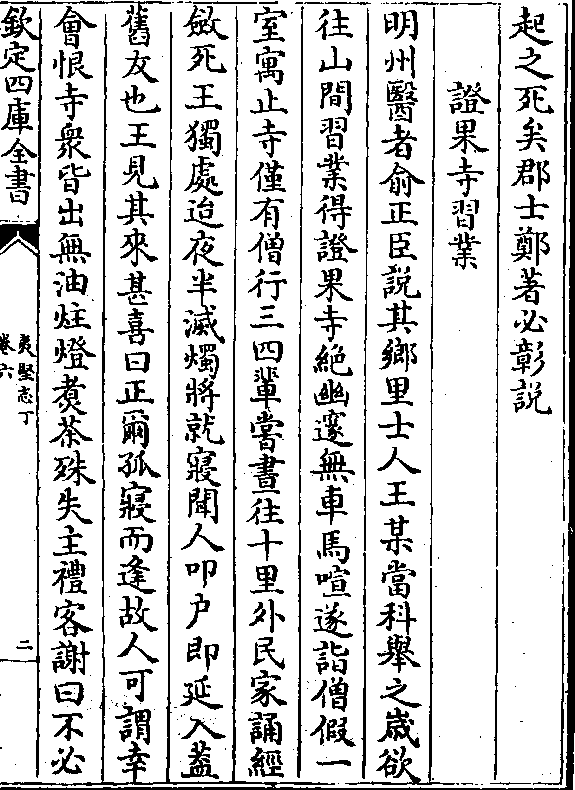 起之死矣郡士鄭著必彰説
證果寺習業
明州醫者俞正臣説其鄉里士人王某當科舉之歳欲
往山間習業得證果寺絶幽邃無車馬喧遂詣僧假一
室寓止寺僅有僧行三四輩嘗晝往十里外民家誦經
斂死王獨處迨夜半滅燭將就寢聞人叩户即延入蓋
舊友也王見其來甚喜曰正爾孤寢而逢故人可謂幸
會恨寺衆皆出無油炷燈煑茶殊失主禮客謝曰不必
欽定四庫全書
夷堅志丁
卷六
二